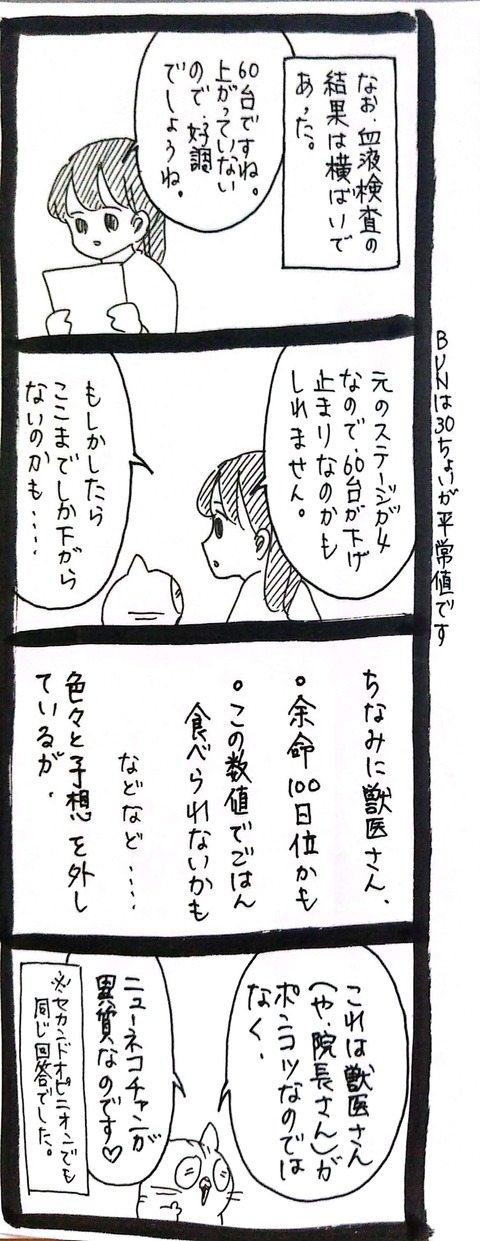 なお、血液検査の
結果は横ばいで
あった。
60台ですね。
上がっていない
ので、好調
でしょうね。
元のステージが4
なので、60台が下げ
止まりなのかも
しれません。
もしかしたら
ここまでしか下がら
ないのかも....
BUNは30ちょいが平常値です
ちなみに獣医さん、
。余命100日位かも
。この数値でごはん
食べられないかも
などなど....
色々と予想を外し
ているが、
これは獣医さん
(や、院長さん)が
ポンコツなのでは
なく、
ニューネコチャンが
異質なのです♡
※セカンドオピニオンでも
同じ回答でした。